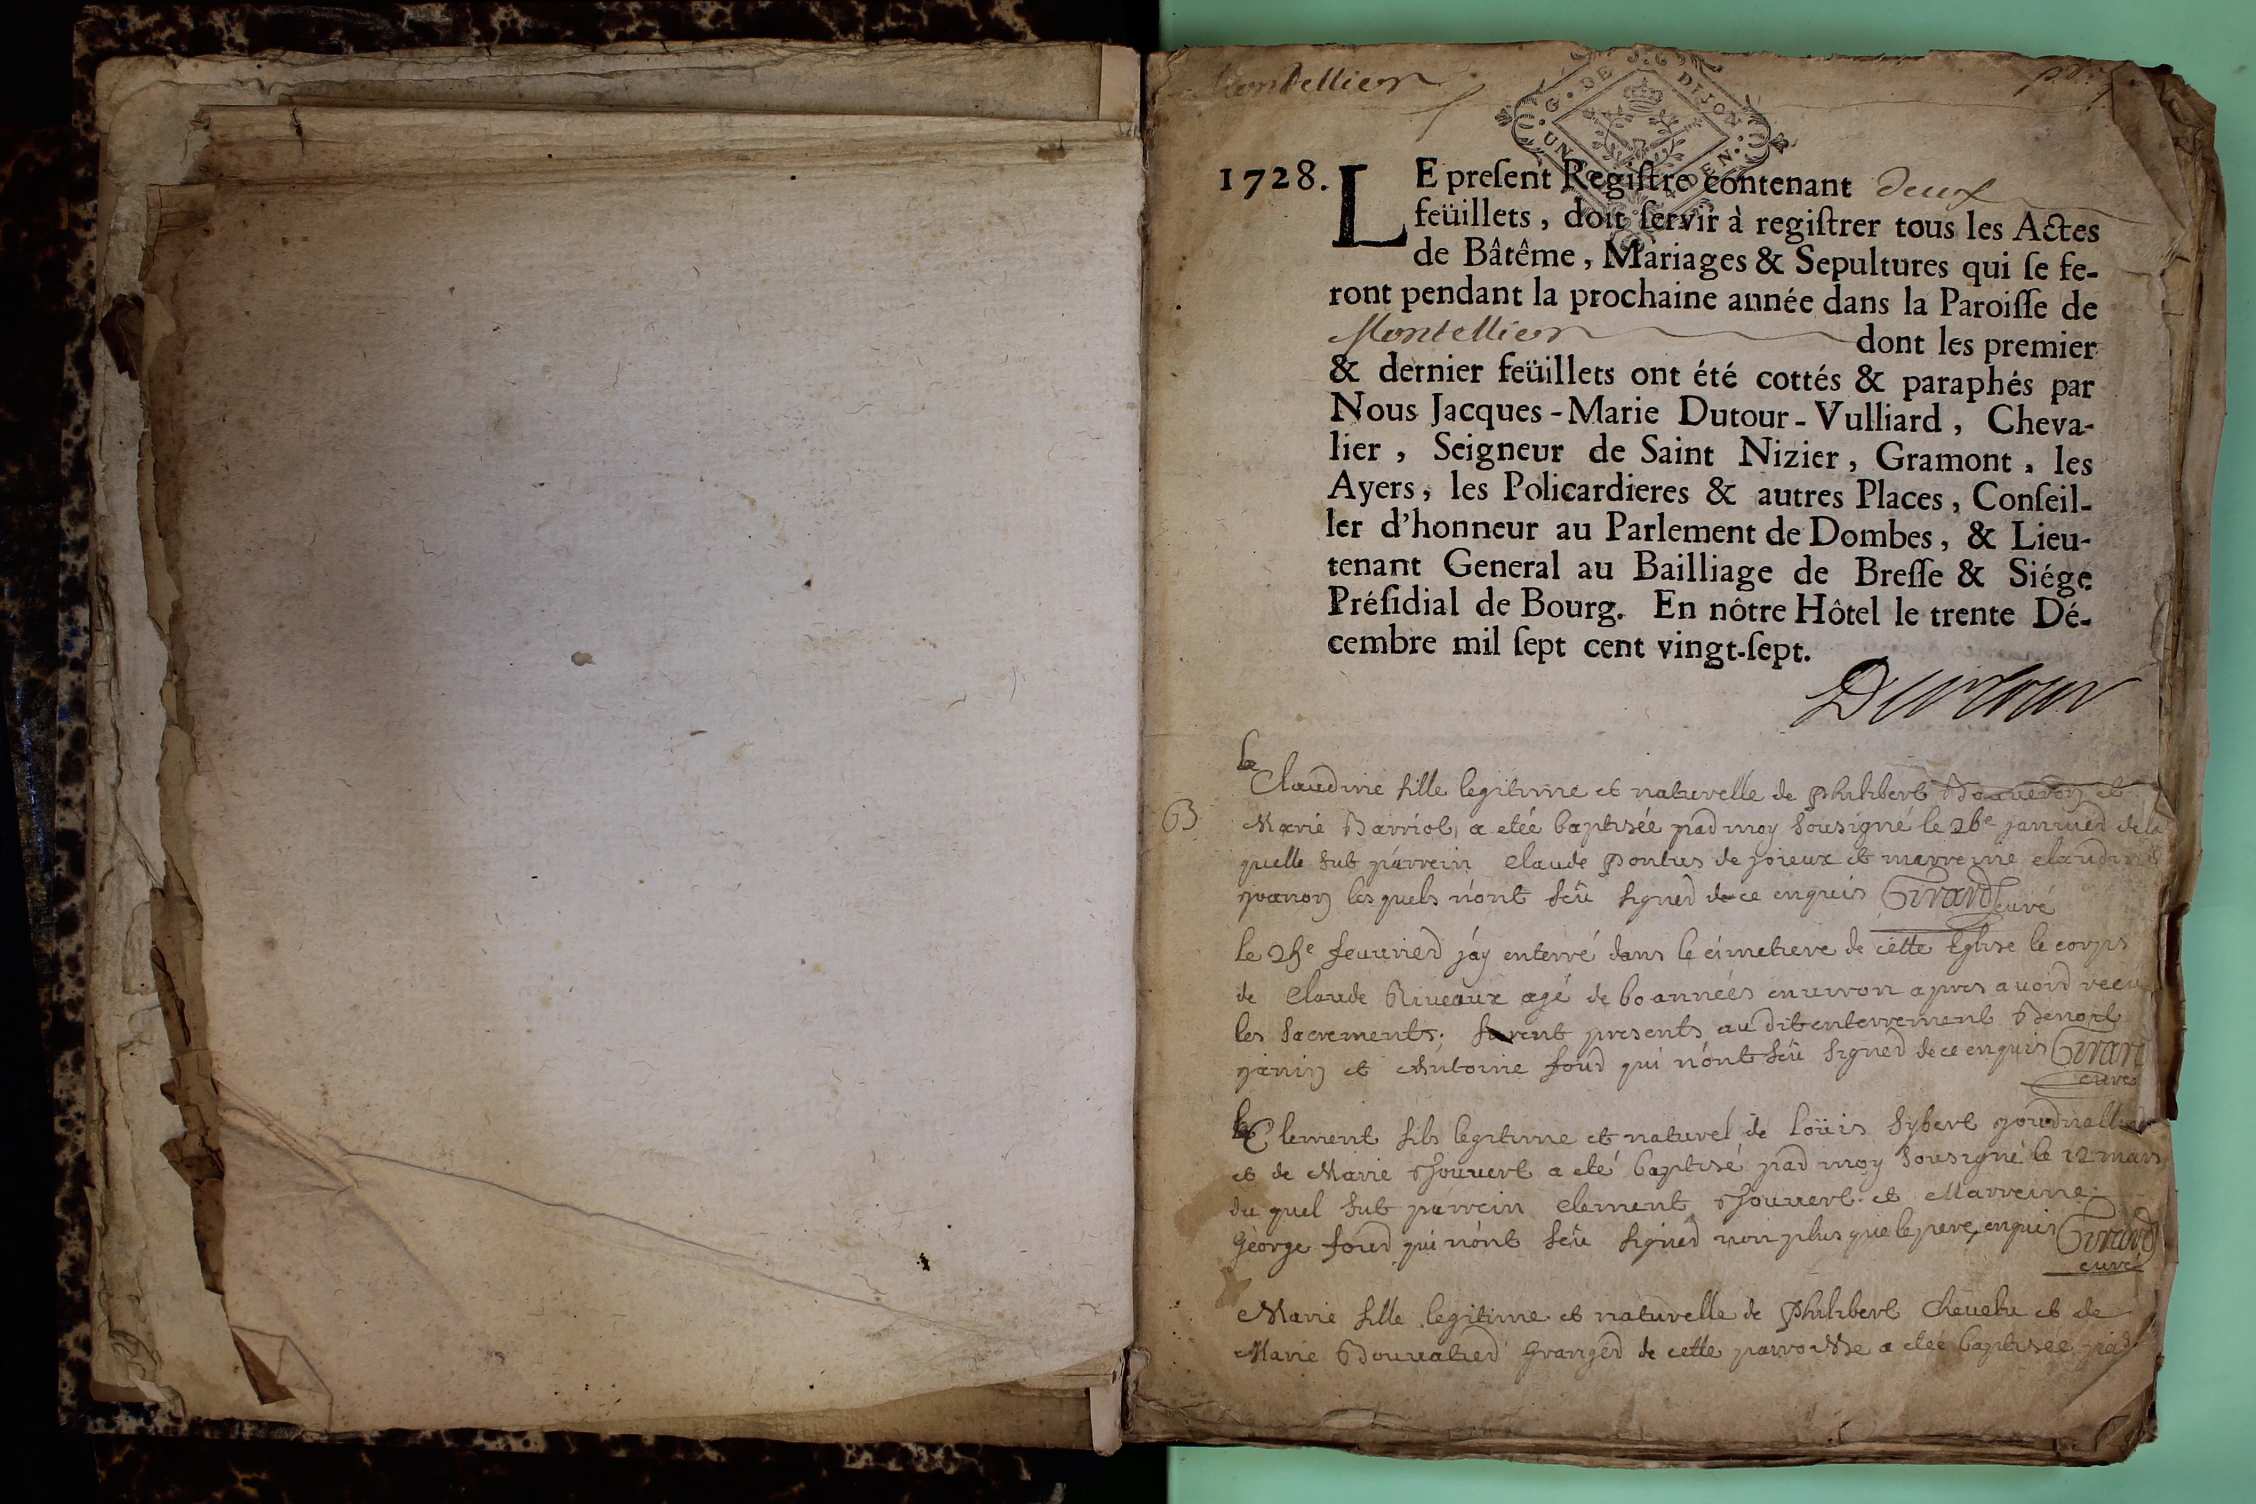 Montellier
G. DE DIJON
UN DEN.
1728. LE preſent Regiſtre contenant deux
feüillets, doit ſervir à regiſtrer tous les Actes
de Bâtême, Mariages & Sepultures qui ſe fe-
ront pendant la prochaine année dans la Paroiſſe de
Montellier dont les premier
& dernier feüillets ont été cottés & paraphés par
Nous Jacques-Marie Dutour-Vulliard, Cheva-
lier, Seigneur de Saint Nizier, Gramont, les
Ayers, les Policardieres & autres Places, Conſeil-
ler d'honneur au Parlement de Dombes, & Lieu-
tenant General au Bailliage de Breſſe & Siége
Préſidial de Bourg. En nôtre Hôtel le trente Dé-
cembre mil ſept cent vingt-ſept.
Dutour
Claudine fille legitime et naturelle de Philibert et
Marie Barriol, a etée baptisée par moy sousigné le 26e janvier de la
quelle fut parrein Claude pontus de joieux et marreine claudine
les quels n'ont sçû signer de ce enquis Girard curé
le 25e feuvrier j'ay enterré dans le cimetiere de cette Eglise le corps
de Claude Riveaux agé de 60 années environ apres avoir recu
les sacrements; furent presents au dit enterrement Benoit
janin et Antoine four qui n'ont sçû signer de ce enquis Girard
curé
Clement fils legitime et naturel de Loüis Sybert journallier
et de Marie Jouvert a eté baptisé par moy sousigné le 12 mars
du quel fut parrein clement Jouvert et Marreine
George four qui n'ont sçû signer non plus que le pere, enquis Girard
curé
Marie fille legitime et naturelle de Philibert Chevelu et de
Marie Bouvatier Granger de cette parroisse a etée baptisée par